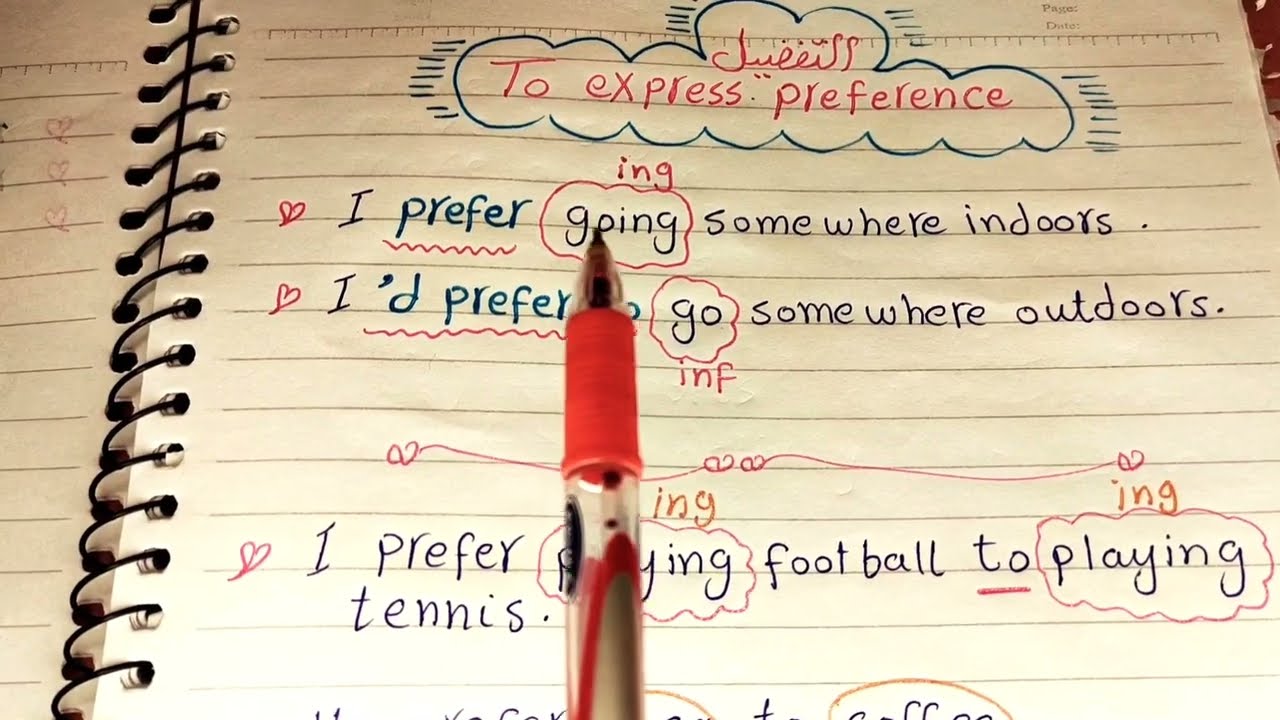 Page:
Date:
التفضيل
To express "preference
ing
I prefer going somewhere indoors .
I 'd prefer go somewhere outdoors.
inf
ing ing
I prefer playing football to playing
tennis.
prefer to coffee